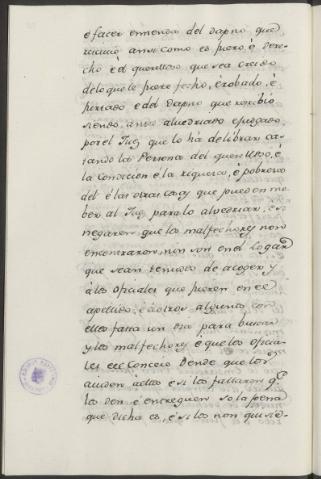 e facer enmienda del dapno que
recivió ansi como es fuero, é dere-
cho é el querelloso que sea creido
de lo que le fuere fecho, é robado, é
furtado e del dapno que recibió
siendo, antes alvedriado e juzgado,
por el Juez que lo há de librar, ca-
tando la Persona del querelloso, é
la Condicion é la riqueza, é pobreza
del é las otras cosas que pueden mo-
ber al Juez para lo alvedriar, é si
negaren que los malfechores non
encerraron, non son en el Logar
que sean tenidos de acoger y
á los oficiales que fueren en el
apellido, é á otros algunos con
ellos fasta un dia para buscar
y los malfechores e que los oficia-
les e el Concejo dende que les
aiuden a ello e si los fallaren qe.
los den é entreguen so la pena
que dicha es, é si los non quisie-